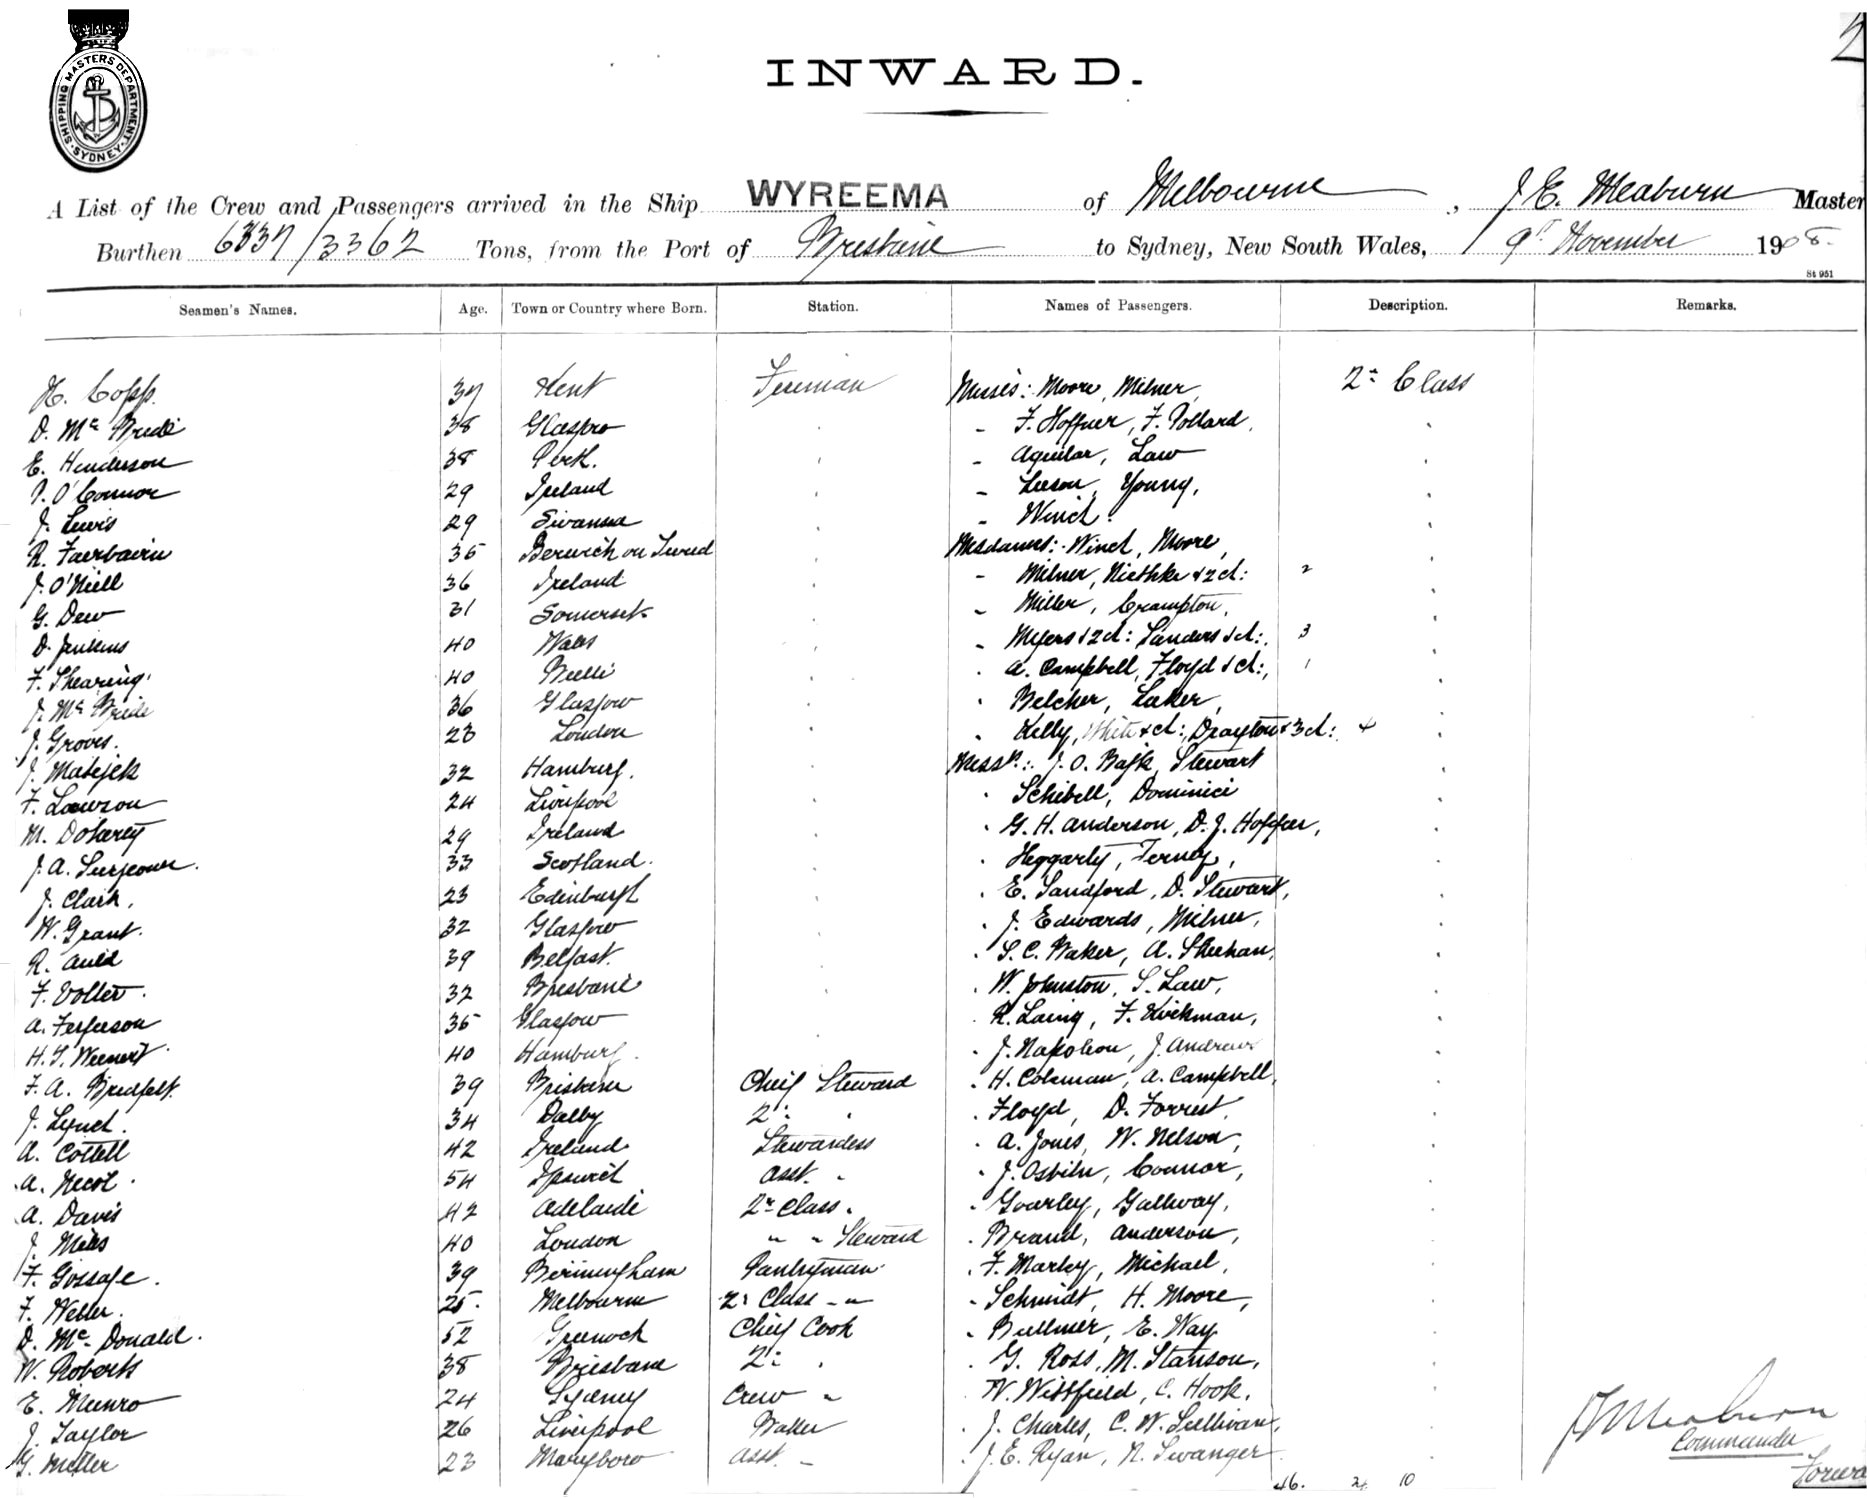 2
SHIPPING MASTERS DEPARTMENT
SYDNEY
INWARD.
A List of the Crew and Passengers arrived in the Ship WYREEMA of Melbourne, J. E. Meaburn Master
Burthen 6337/3362 Tons, from the Port of Brisbane to Sydney, New South Wales, 9th November 1908.
St 951
Seamen's Names. Age. Town or Country where Born. Station. Names of Passengers. Description. Remarks.
H. Copp. 37 Kent Fireman Misses: Moore, Milner, 2nd Class
D. McBride 38 Glasgow - F. Hoffner, F. Pollard,
E. Henderson 38 Perth. - Aguilar, Law
P. O'Connor 29 Ireland - Leeson, Young,
J. Lewis 29 Swansea - Winch.
R. Fairbairn 35 Berwick on Tweed Mesdames: Winch, Moore,
J. O'Niell 36 Ireland - Milner, Niethke & 2 ch: 2
G. Dew 31 Somerset - Miller, Crampton,
D. Jenkins 40 Wales - Myers & 2 ch: Sanders & ch:, 3
F. Shearing. 40 Bulli - A. Campbell, Floyd & ch:, 1
J. McBride 36 Glasgow Belcher, Laker,
J. Groves. 23 London Kelly, White & ch:, Drayton & 3 ch: 4
J. Matejek 32 Hamburg. Messrs: J. O. Stewart
F. Lawson 24 Liverpool Schibell, Dominici
M. Doherty 29 Ireland G. H. Anderson, D. J. Hoffner,
J. A. Surgeoner. 33 Scotland. Heggarty, Ferney,
J. Clark. 23 Edinburgh E. Sandford, D. Stewart,
W. Grant. 32 Glasgow J. Edwards, Milner,
R. Auld 39 Belfast. S. C. Baker, A. Sheehan,
F. Volter. 32 Brisbane W. Johnston, S. Law,
A. Ferguson 35 Glasgow R. Laing, F. Hickman,
H. T. Weenert 40 Hamburg. J. Napoleon, J. Andrews
F. A. 39 Brisbane Chief Steward H. Coleman, A. Campbell,
J. Lynch. 34 Dalby 2nd " Floyd, D. Forrest,
A. Cottell 42 Ireland Stewardess A. Jones, W. Nelson,
A. Necol. 54 Ipswich Asst. " J. Connor,
A. Davis 42 Adelaide 2nd Class " Gourley, Gallway,
J. Miles 40 London " " Steward Brand, Anderson,
F. Gossage. 39 Birmingham Pantryman F. Marley, Michael,
F. Weller. 25. Melbourne 2nd Class " Schmidt, H. Moore,
D. McDonald. 52 Greenock Chief Cook Bullmer, E. Way
W. Roberts 38 Brisbane 2nd " G. Ross, M. Stanson,
E. Munro 24 Sydney Crew " W. Wittfield, C. Hook,
J. Taylor 26 Liverpool Baker J. Charles, C. W. Sullivan,
G. Miller 23 Maryboro Asst. " J. E. Ryan, R. Swanger
J E Meaburn
Commander
46. 24 10